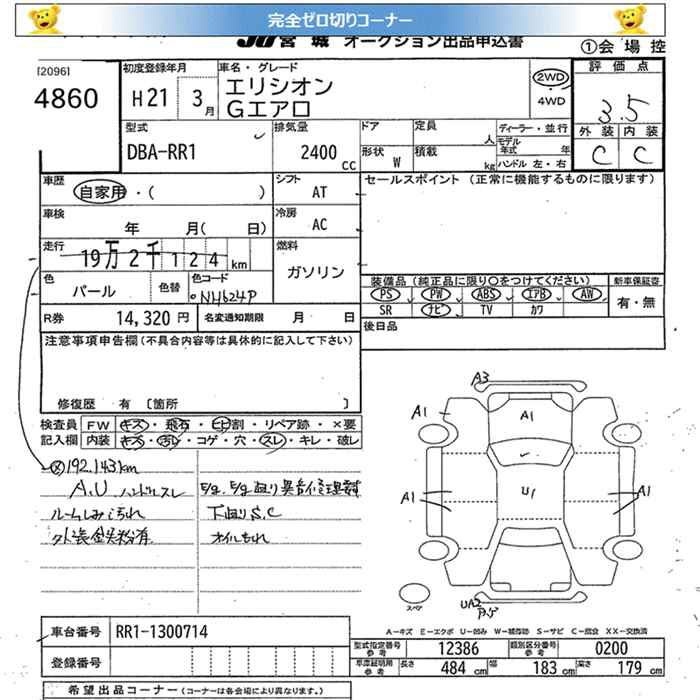 完全ゼロ切りコーナー
JU宮城 オークション出品申込書
①会場控
[2096]
4860
初度登録年月
H21 3月
車名・グレード
エリシオン
Gエアロ
2WD
・
4WD
評価点
3.5
外装 内装
C C
型式
DBA-RR1
排気量
2400 cc
ドア
定員
人
ディーラー・並行
モデル年式 年
形状 W
積載
kg
ハンドル 左・右
車歴
自家用・( )
シフト
AT
セールスポイント (正常に機能するものに限ります)
車検
年 月( 日)
冷房
AC
走行
19万2千124km
燃料
ガソリン
色
パール
色替
色コード
NH624P
装備品 (純正品に限り○をつけてください)
新車保証書
PS PW ABS エアB AW
有・無
SR ナビ TV カワ
R券 14,320円
名変通知期限 月 日
後日品
注意事項申告欄(不具合内容等は具体的に記入して下さい)
修復歴 有 〔箇所 〕
検査員 FW キズ・飛石・ヒビ割・リペア跡・×要
記入欄 内装 キズ・汚レ・コゲ・穴・スレ・キレ・破レ
192,143km
A.U ハンドルスレ
ルームしみ汚れ
下廻りS.C
オイルもれ
A3
A1
A1
A1
A1
U1
UA2
スペア
A-キズ E-エクボ U-凹み W-補修跡 S-サビ C-腐食 XX-交換済
車台番号 RR1-1300714
型式指定番号 参考 12386
類別区分番号 参考 0200
登録番号
車庫証明用 参考 長さ 484 cm 幅 183 cm 高さ 179 cm
希望出品コーナー(コーナーは各会場により異なります。)